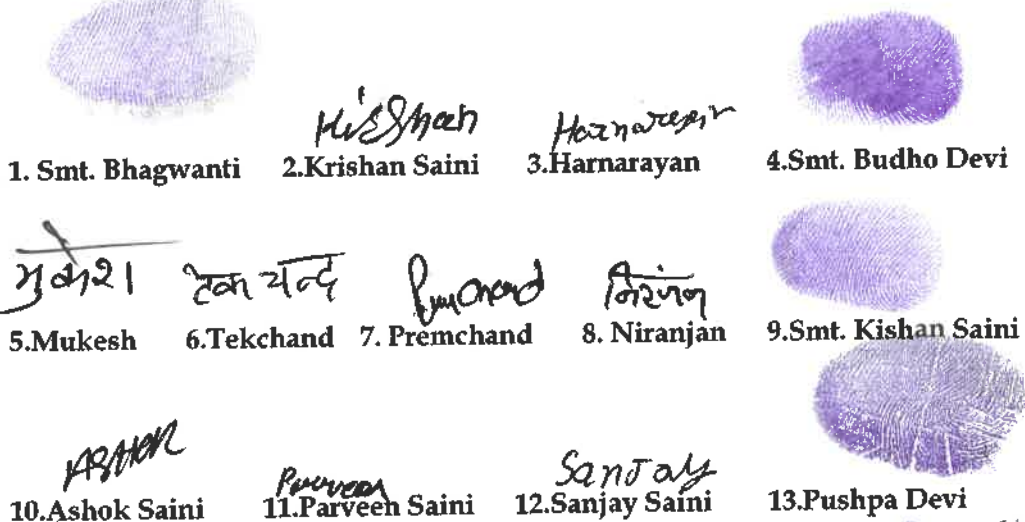 Kisshan Harnarayan
1. Smt. Bhagwanti 2.Krishan Saini 3.Harnarayan 4.Smt. Budho Devi
मुकेश टेक चन्द Premchand निरंजन
5.Mukesh 6.Tekchand 7. Premchand 8. Niranjan 9.Smt. Kishan Saini
AsHok Parveen SanJay
10.Ashok Saini 11.Parveen Saini 12.Sanjay Saini 13.Pushpa Devi